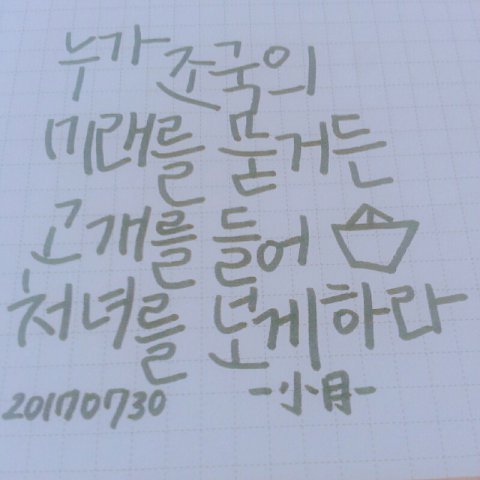 누가 조국의
미래를 묻거든
고개를 들어
처녀를 보게하라
20170730 -小月-